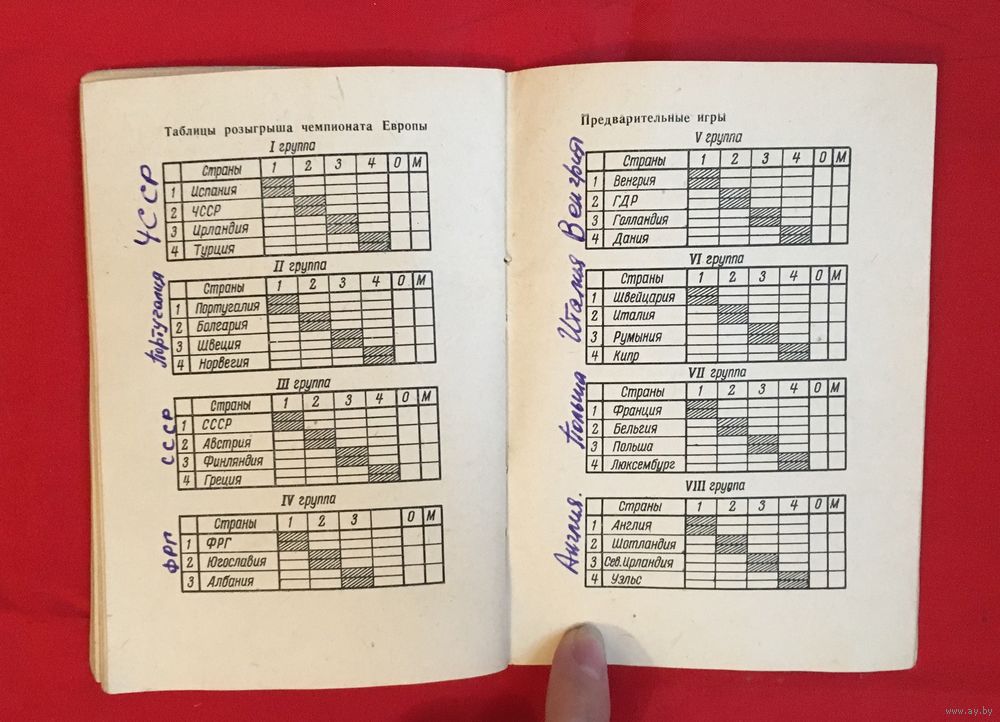 Таблицы розыгрыша чемпионата Европы
I группа
ЧССР
Страны 1 2 3 4 О М
1 Испания
2 ЧССР
3 Ирландия
4 Турция
II группа
Португалия
Страны 1 2 3 4 О М
1 Португалия
2 Болгария
3 Швеция
4 Норвегия
III группа
СССР
Страны 1 2 3 4 О М
1 СССР
2 Австрия
3 Финляндия
4 Греция
IV группа
ФРГ
Страны 1 2 3 О М
1 ФРГ
2 Югославия
3 Албания
Предварительные игры
V группа
Венгрия
Страны 1 2 3 4 О М
1 Венгрия
2 ГДР
3 Голландия
4 Дания
VI группа
Италия
Страны 1 2 3 4 О М
1 Швейцария
2 Италия
3 Румыния
4 Кипр
VII группа
Польша
Страны 1 2 3 4 О М
1 Франция
2 Бельгия
3 Польша
4 Люксембург
VIII группа
Англия.
Страны 1 2 3 4 О М
1 Англия
2 Шотландия
3 Сев.Ирландия
4 Уэльс
www.ay.by